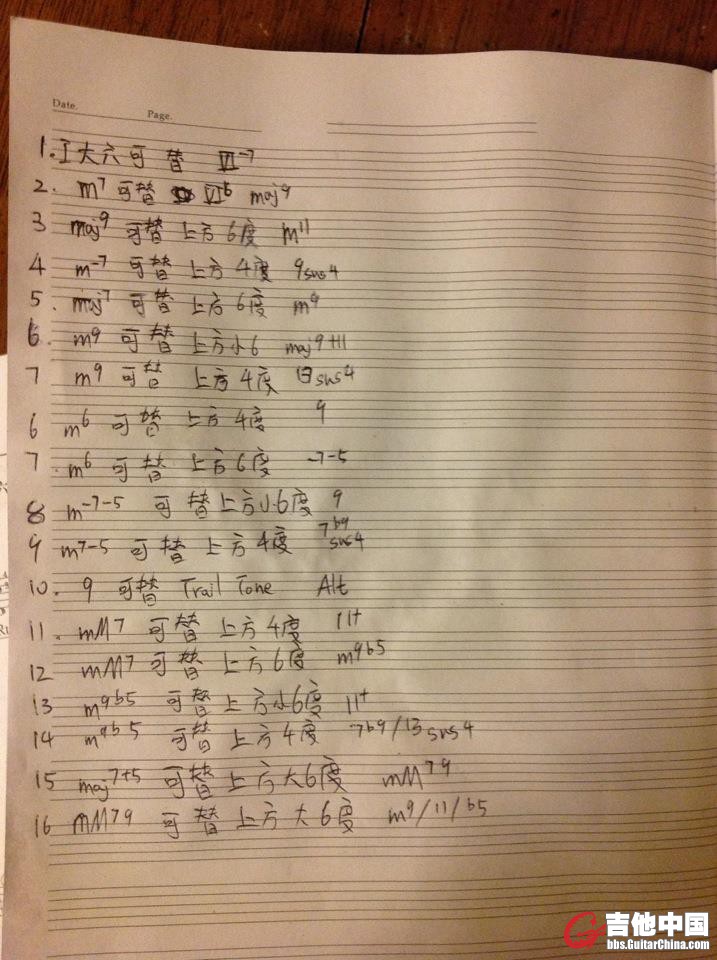 Date.
Page.
1. I大六可替 VI-7
2. m7可替 VIb maj9
3 maj9 可替 上方6度 m11
4 m-7 可替 上方4度 9sus4
5. maj7 可替 上方6度 m9
6. m9 可替 上方小6 maj9+11
7 m9 可替 上方4度 sus4
6 m6 可替 上方4度 9
7. m6 可替 上方6度 -7-5
8 m-7-5 可替上方小6度 9
9 m7-5 可替 上方4度 7b9 sus4
10. 9 可替 Trail Tone Alt
11. mM7 可替 上方4度 11+
12 mM7 可替 上方6度 m9b5
13 m9b5 可替 上方小6度 11+
14 m9b5 可替 上方4度 7b9/13sus4
15 maj7+5 可替上方大6度 mM79
16 mM79 可替 上方大6度 m9/11/b5
吉他中国
bbs.GuitarChina.com